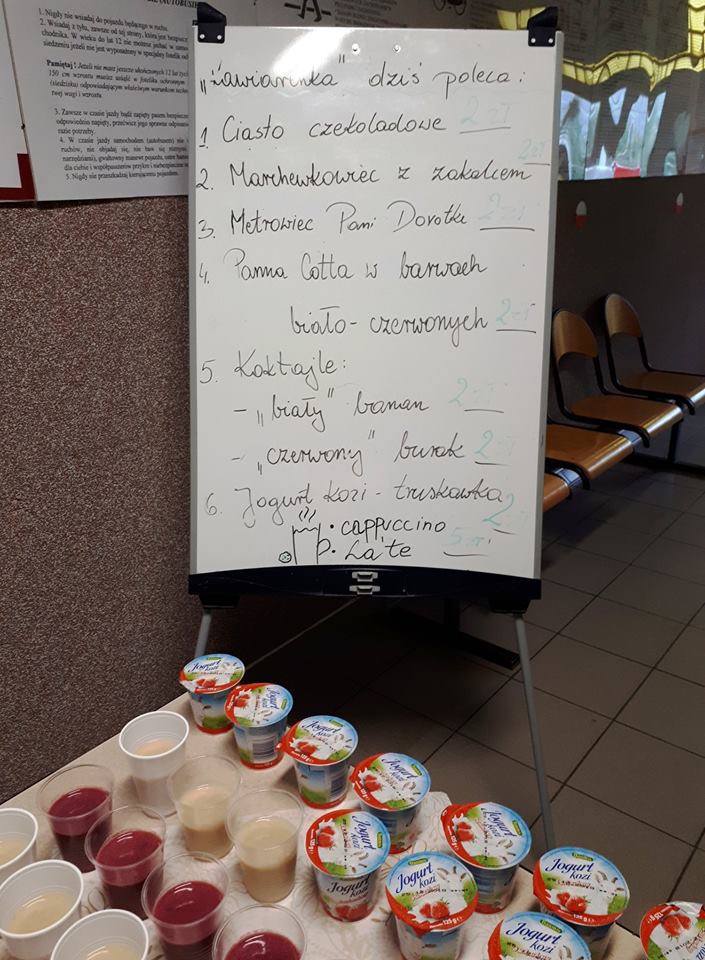 1. Nigdy nie wsiadaj do pojazdu będącego w ruchu.
2. Wsiadaj z tyłu, zawsze od tej strony, która jest
chodnika. W wieku do lat 12 nie możesz jechać w
siedzeniu jeżeli nie jest wyposażony w specjalny fotelik
Pamiętaj! Jeżeli nie masz jeszcze ukończonych 12 lat
150 cm wzrostu musisz usiąść w foteliku ochronnym
(siedzisku) odpowiadającym
wagi i wzrostu.
3. Zawsze w czasie jazdy bądź zapięty pasem
odpowiednio napięty,
razie potrzeby.
4. W czasie jazdy samochodem (autobusem) nie
5. Nigdy nie przeszkadzaj kierującemu pojazdem.
„Żawiarenka" dziś poleca:
1. Ciasto czekoladowe 2 zł
2. Marchewkowiec z zakalcem 2 zł
3. Metrowiec Pani Dorotki 2 zł
4. Panna Cotta w barwach
biało-czerwonych 2 zł
5. Koktajle:
- „biały" banan 2 zł
- „czerwony" burak 2 zł
6. Jogurt kozi - truskawka 2 zł
• cappuccino
• Late 5 zł
Jogurt kozi
Jogurt kozi
Jogurt kozi
Jogurt kozi
Jogurt kozi
Jogurt kozi
Jogurt kozi
125 g
Jogurt kozi
Jogurt kozi
125 g
Jogurt kozi